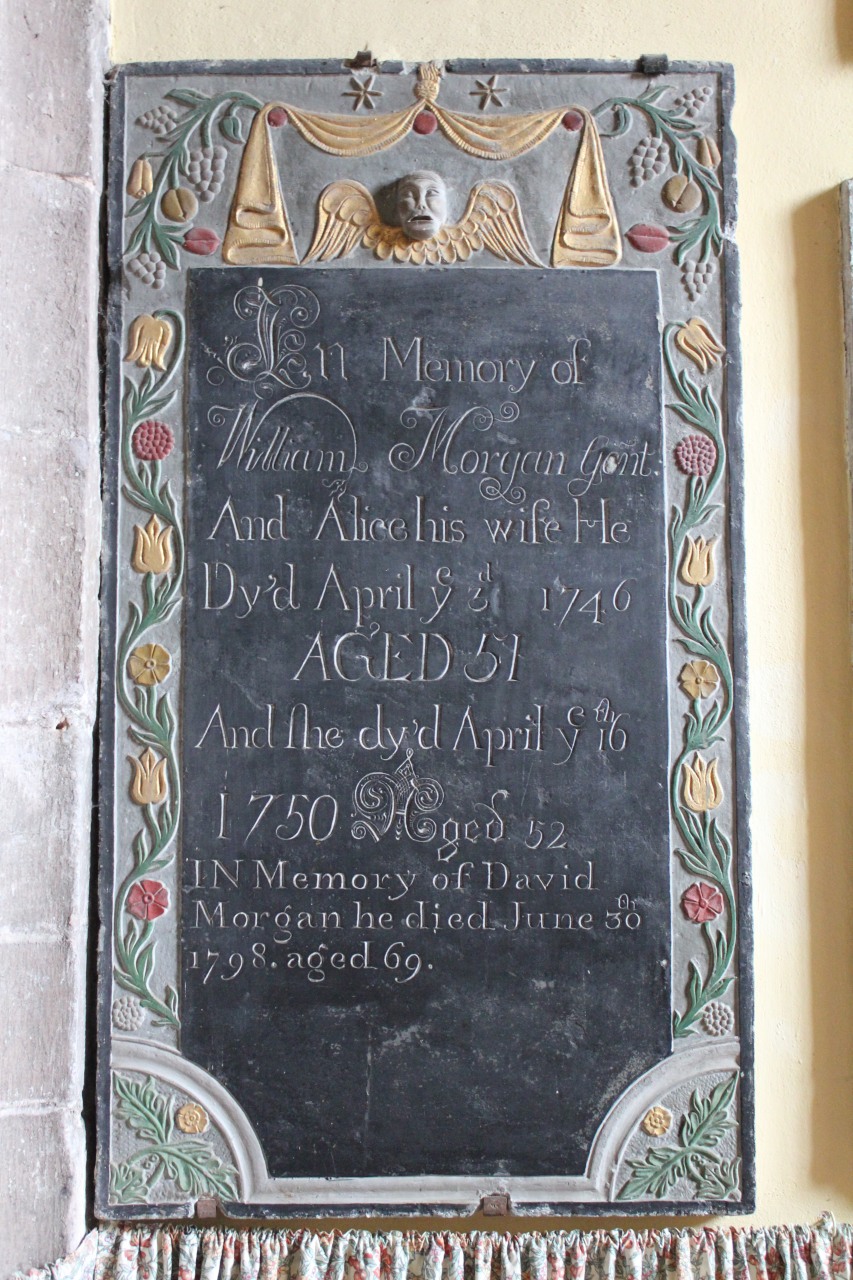 In Memory of
William Morgan Gent.
And Alice his wife He
Dy'd April yᵉ 3ᵈ 1746
AGED 51
And ſhe dy'd April yᵉ 16ᵗʰ
1750 Aged 52
IN Memory of David
Morgan he died June 30ᵗʰ
1798. aged 69.